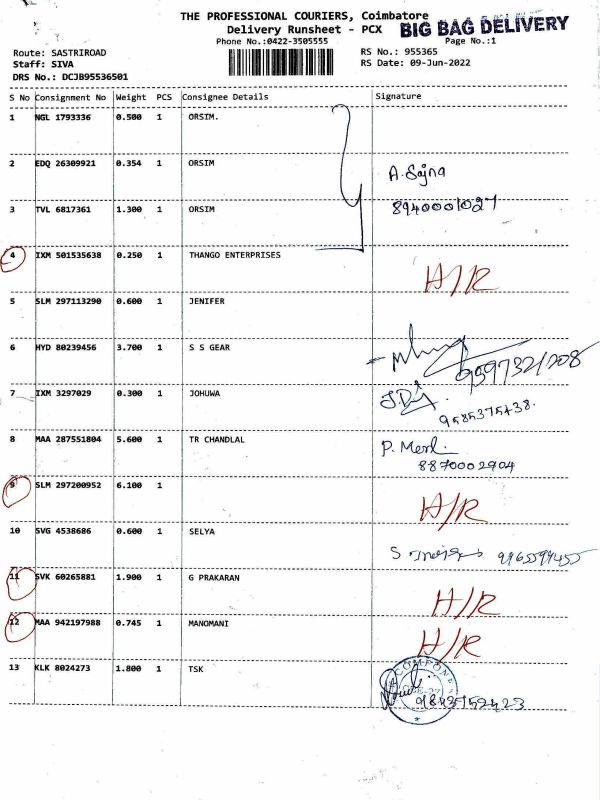 THE PROFESSIONAL COURIERS, Coimbatore
Delivery Runsheet - PCX
BIG BAG DELIVERY
Phone No.:0422-3505555
Page No.:1
Route: SASTRIROAD
RS No.: 955365
Staff: SIVA
RS Date: 09-Jun-2022
DRS No.: DCJB95536501
S No Consignment No Weight PCS Consignee Details Signature
1 NGL 1793336 0.500 1 ORSIM.
2 EDQ 26309921 0.354 1 ORSIM
A. Sajna
3 TVL 6817361 1.300 1 ORSIM
8940001027
4 IXM 501535638 0.250 1 THANGO ENTERPRISES
H/R
5 SLM 297113290 0.600 1 JENIFER
6 HYD 80239456 3.700 1 S S GEAR
9597321208
7 IXM 3297029 0.300 1 JOHUWA
9585375438.
8 MAA 287551804 5.600 1 TR CHANDLAL
P. 
8870002904
9 SLM 297200952 6.100 1
H/R
10 SVG 4538686 0.600 1 SELYA
S
11 SVK 60265881 1.900 1 G PRAKARAN
H/R
12 MAA 942197988 0.745 1 MANOMANI
H/R
13 KLK 8024273 1.800 1 TSK